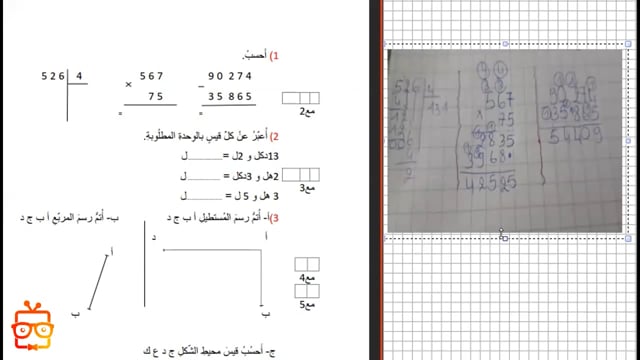 1) أحسبُ.
526 4
567
× 75
=
90274
− 35865
=
مع2
2) أُعَبِّرُ عنْ كلِّ قيسٍ بالوحدةِ المطلُوبةِ.
13دكل و 2ل =............ ل
2هل و 3دكل =............ ل
3 هل و 5 ل =............ ل
مع3
3) أ- أُتمُّ رسمَ المُستطيلِ أ ب ج د
ب- أُتمُّ رسمَ المربّعِ أ ب ج د
أ
د
ب
أ
ب
مع4
مع5
ج- أحسُبُ قيسَ محيطِ الشّكلِ ج د ع ك
526 4
131
567
× 75
2835
3968
42525
54409